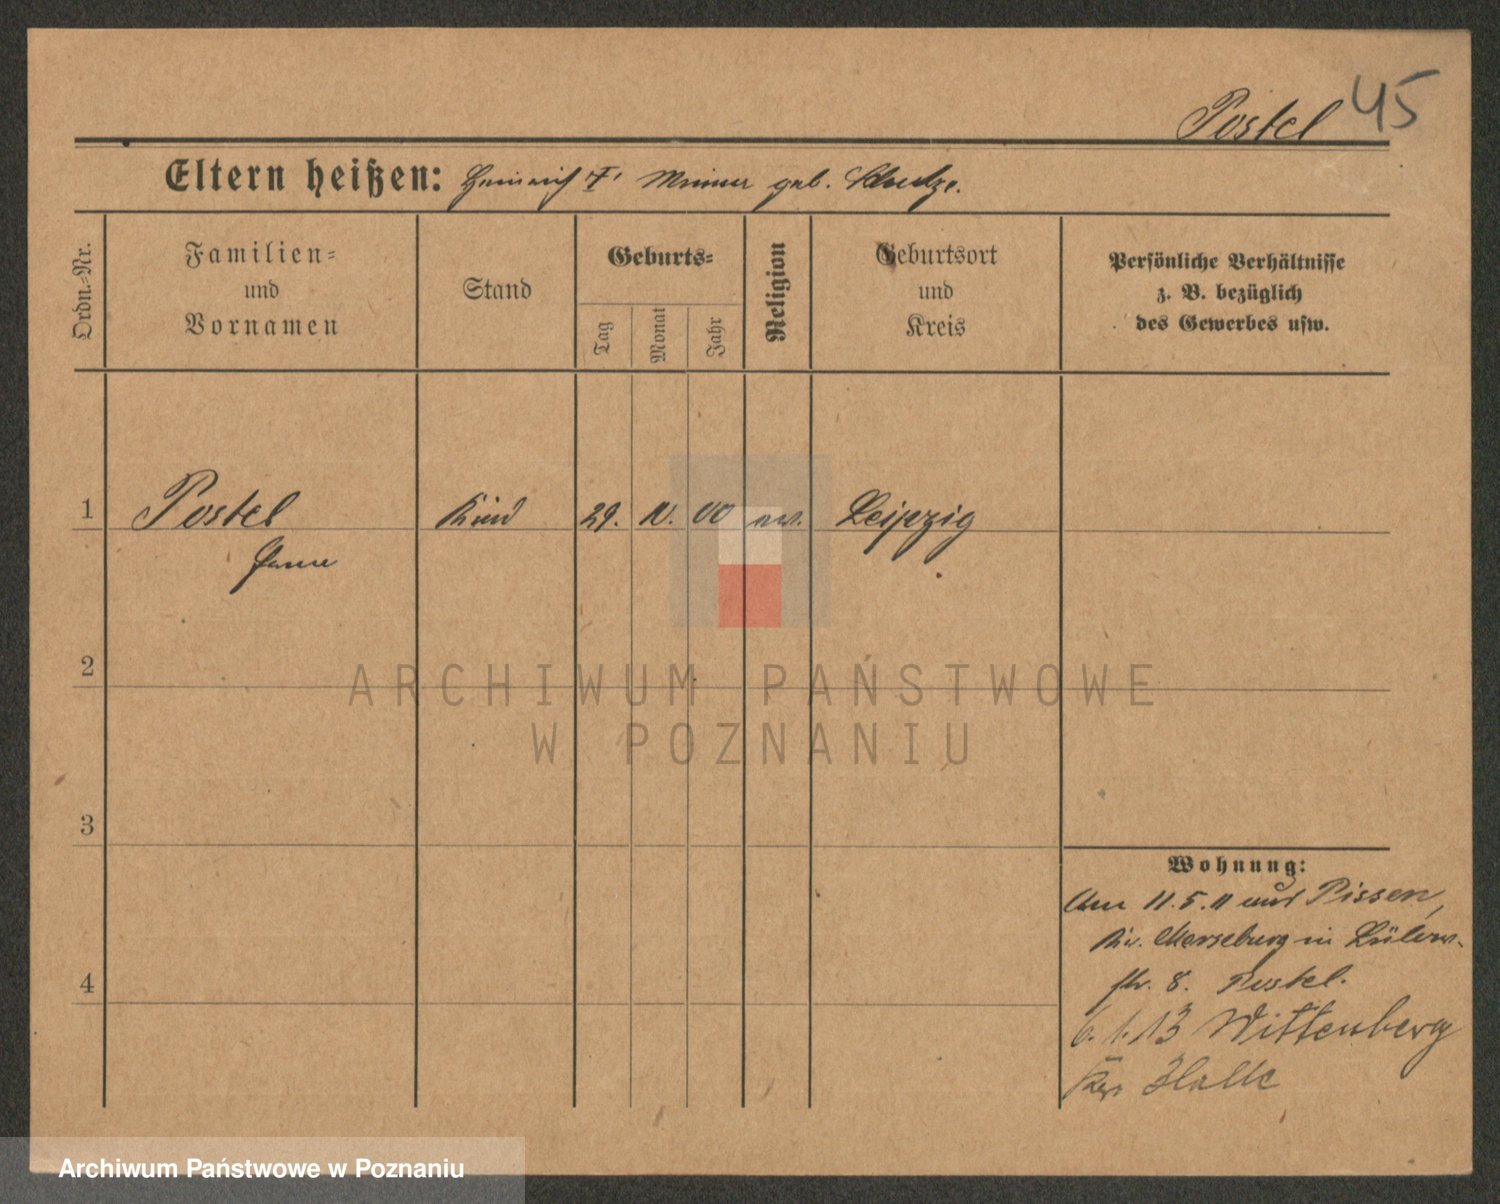 Postel 45
Eltern heißen: Heinrich geb. Schulze.
Ordn.-Nr.
Familien-
und
Vornamen
Stand
Geburts-
Tag
Monat
Jahr
Religion
Geburtsort
und
Kreis
Persönliche Verhältnisse
z. B. bezüglich
des Gewerbes usw.
1 Postel Kind 29. 00 ev. Leipzig
2
3
4
Wohnung:
Am 11.5.11 aus Pissen,
Kr. Merseburg in
str. 8. Postel.
6.1.13 Wittenberg
Halle
ARCHIWUM PAŃSTWOWE
W POZNANIU
Archiwum Państwowe w Poznaniu